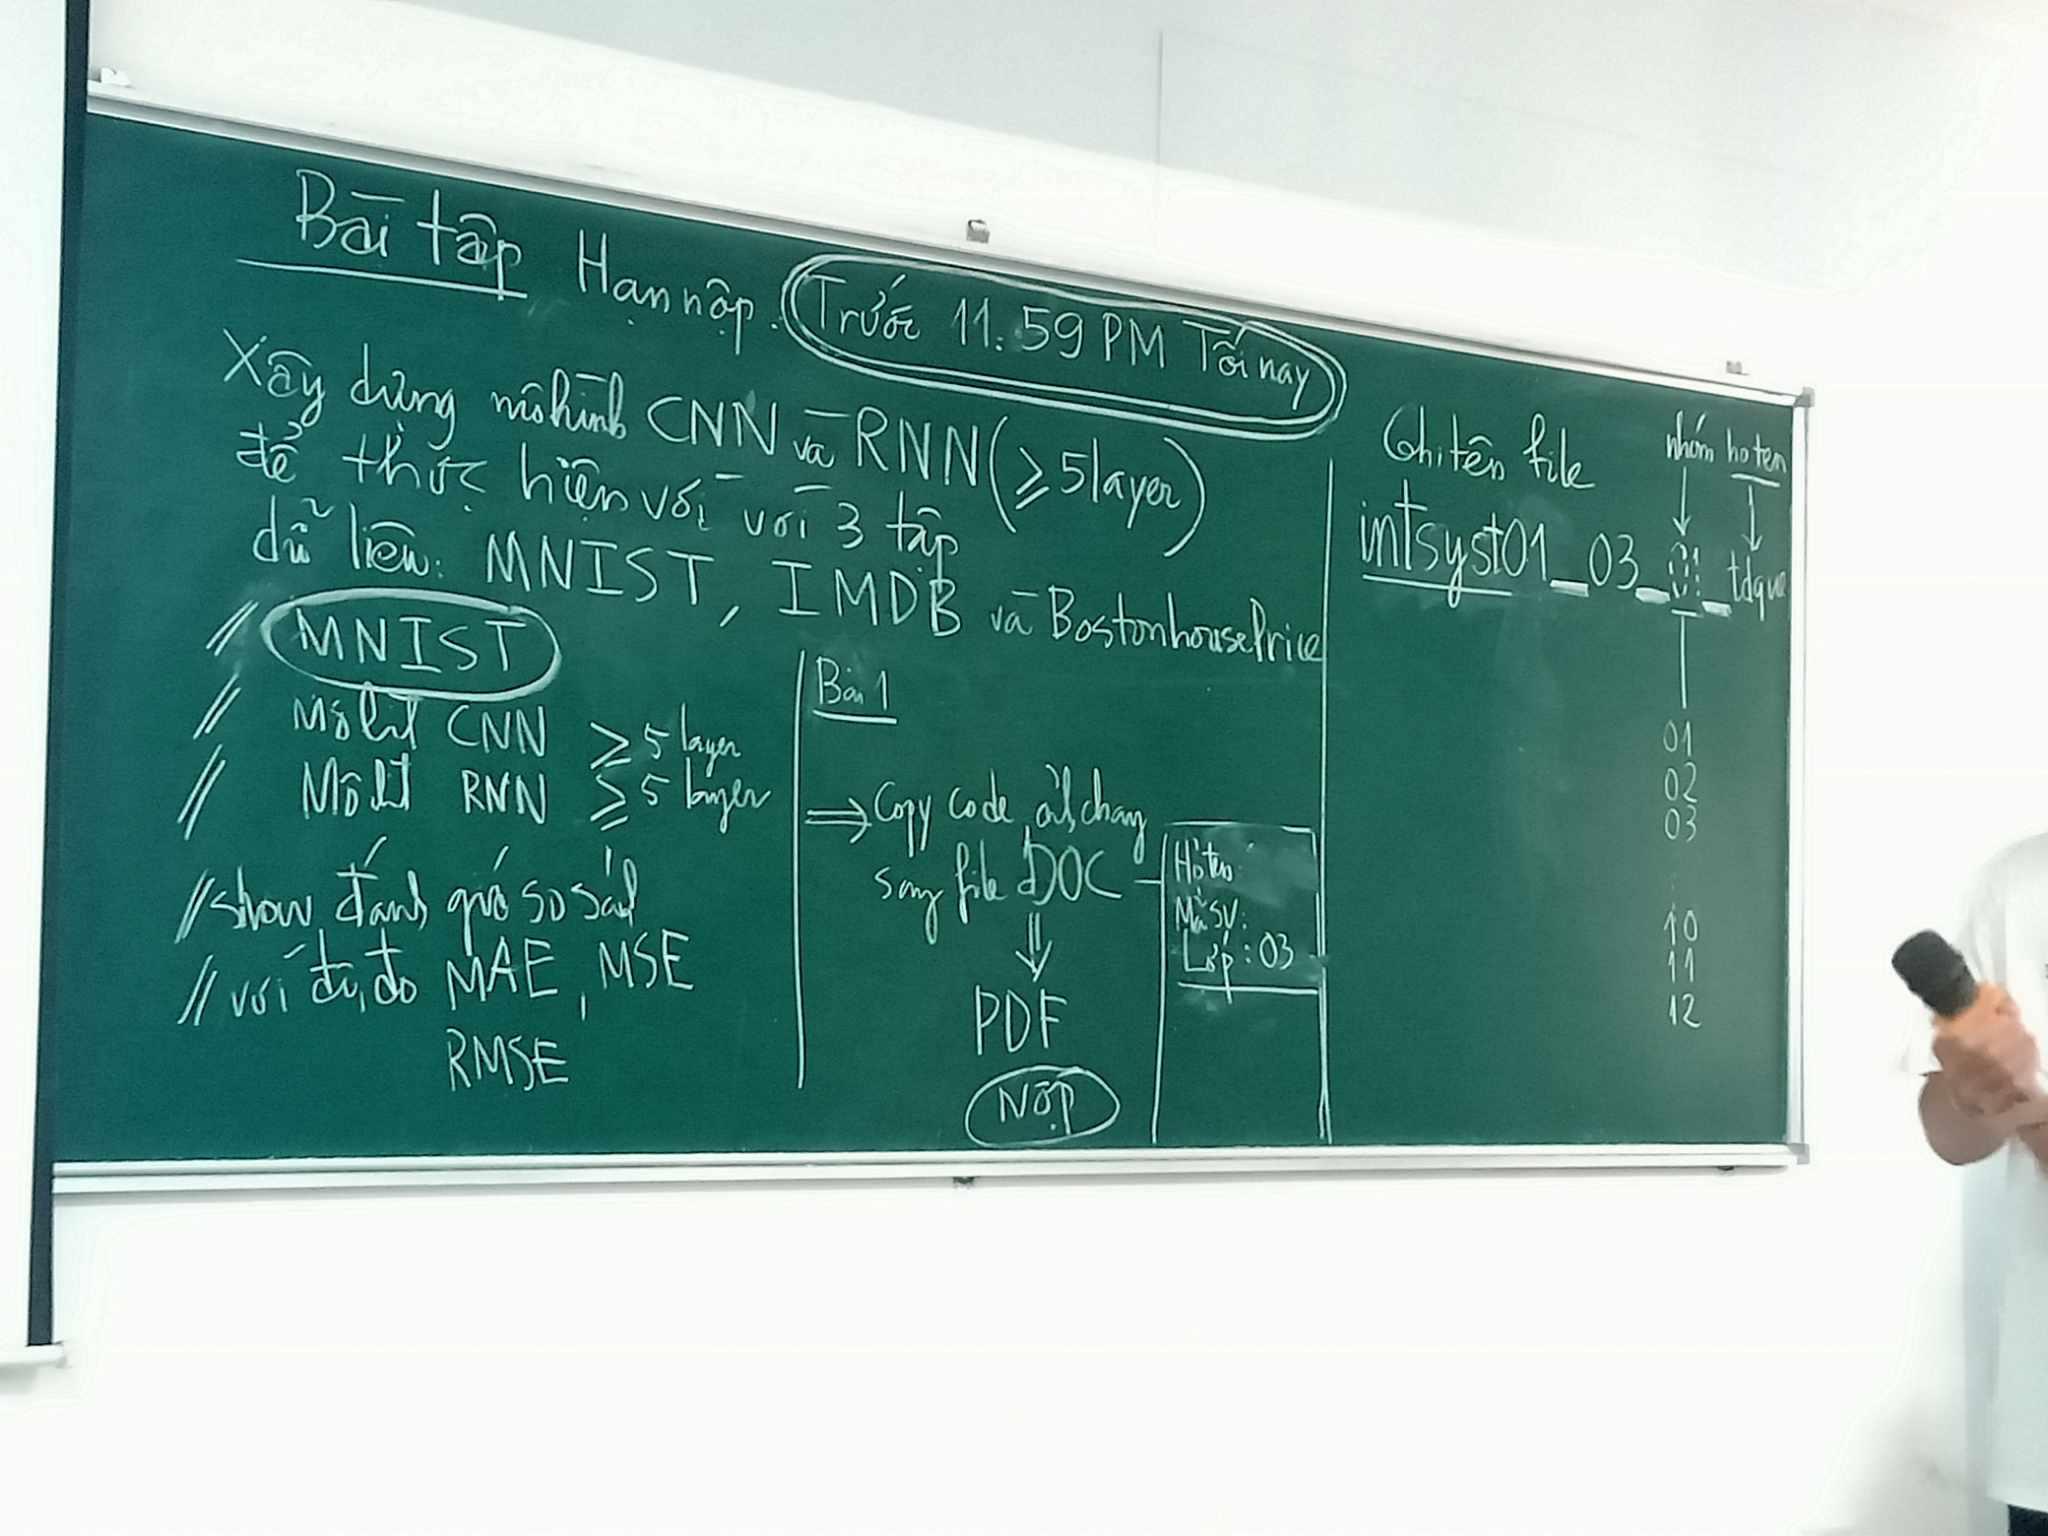 Bài tập Hạn nộp: Trước 11:59 PM Tối nay
Xây dựng mô hình CNN và RNN (≥ 5 layer)
để thực hiện với với 3 tập
dữ liệu: MNIST, IMDB và BostonhousePrice
// MNIST
// Mô hì CNN ≥ 5 layer
// Mô hì RNN ≥ 5 layer
// show đánh giá so sánh
// với độ đo MAE, MSE
RMSE
Bài 1
⇒ Copy code, ảnh chạy
sang file DOC
⇓
PDF
Nộp
Họ tên:
Mã SV:
Lớp: 03
Ghi tên file
nhóm ho ten
intsyst01_03_01_tdque
01
02
03
10
11
12